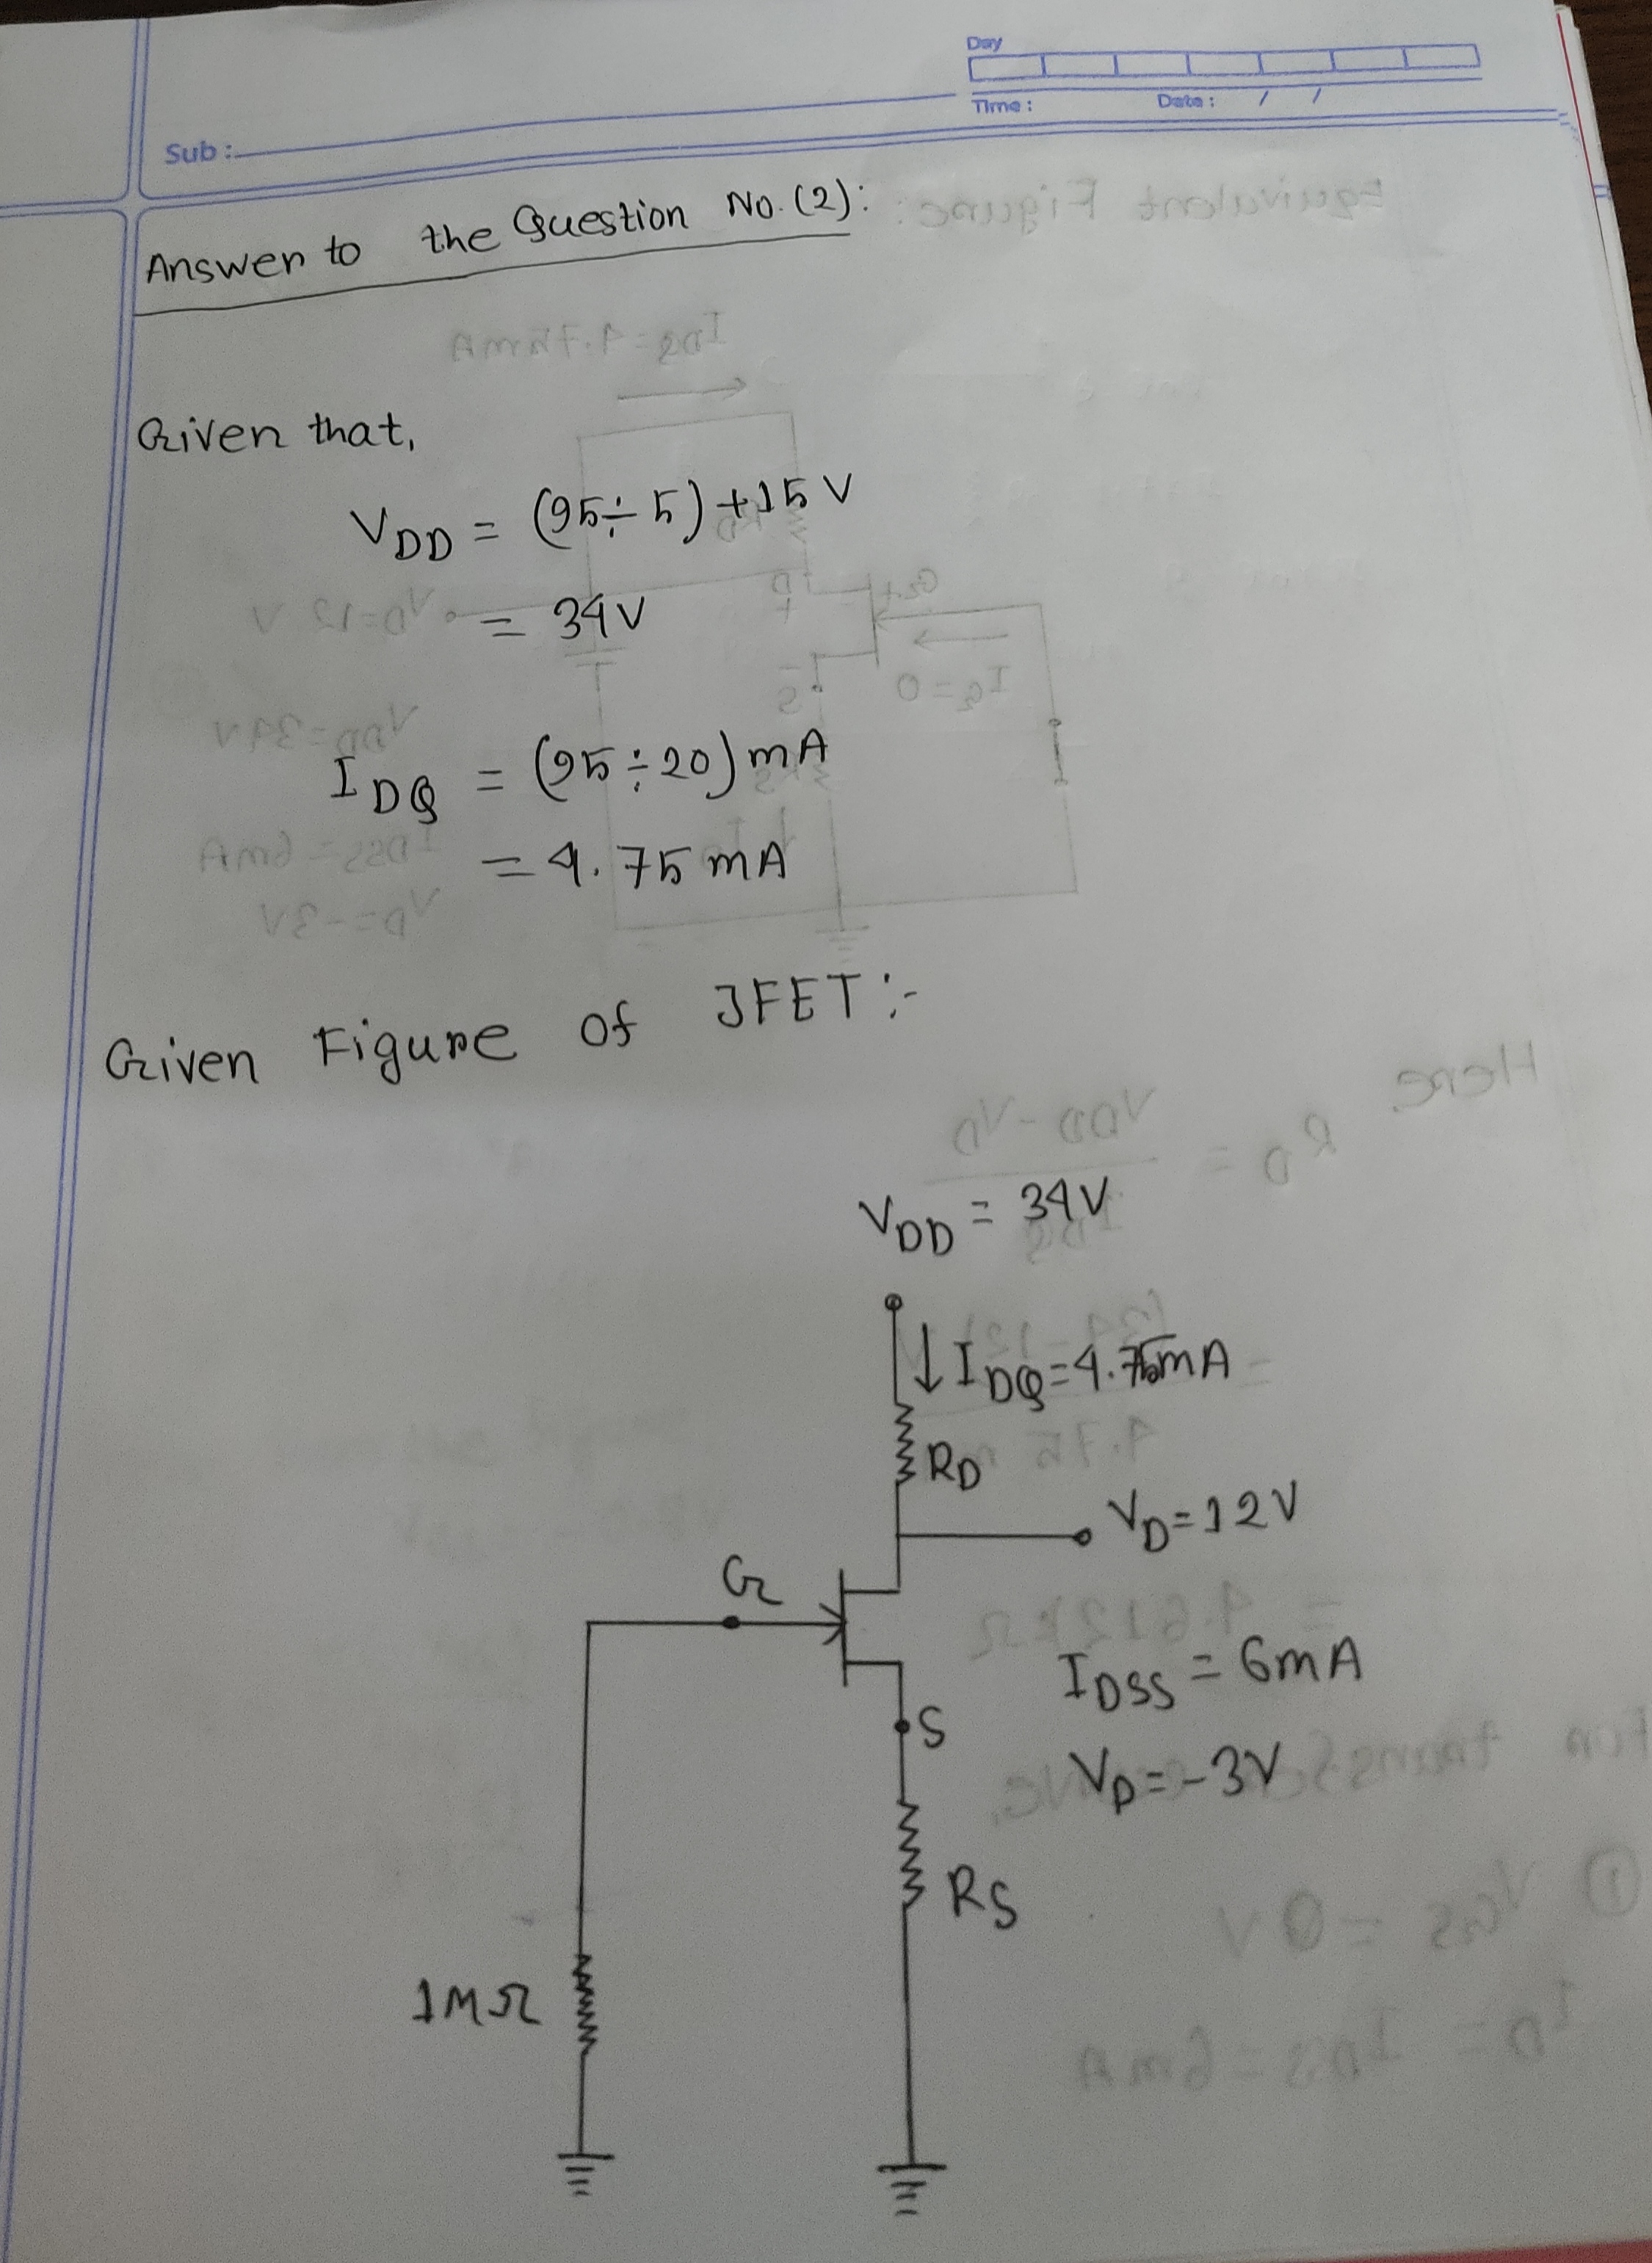 Day
Time : Date : / /
Sub :
Answer to the Question No. (2):
Given that,
VDD = (95÷5)+15 V
= 34V
IDQ = (95÷20) mA
= 4.75 mA
Given Figure of JFET :-
VDD = 34V
↓ IDQ=4.75mA
RD
VD=12V
G
IDSS = 6mA
S
VP=-3V
RS
1MΩ